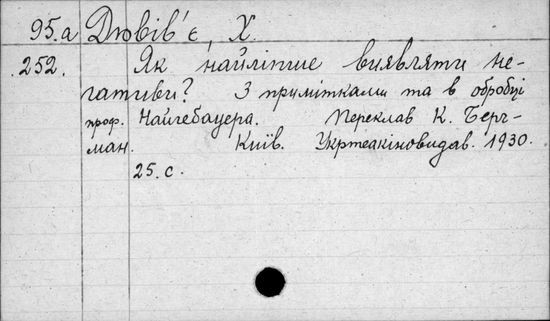 95.а Дювів'є, Х.
252. Як найліпше виявляти не-
гативи? З примітками та в обробці
проф. Найгебауера. Переклав К. Берг-
ман. Київ. Укртеакіновидав. 1930.
25. с.